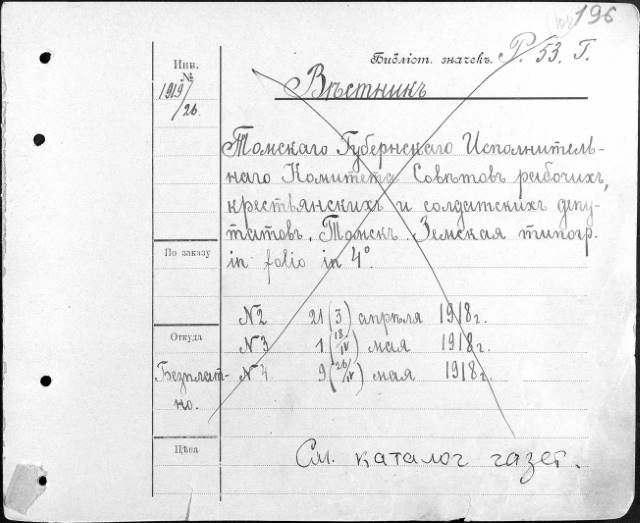 196
Библіот. значекъ. Р. 53. Г.
Инв.
№
1919/26.
Вѣстникъ
Томскаго Губернскаго Исполнитель-
наго Комитета Совѣтовъ рабочихъ,
крестьянскихъ и солдатскихъ депу-
татовъ. Томскъ. Земская типогр.
in folio in 4°.
По заказу
№2 21 (3) апрѣля 1918 г.
Откуда
№3 1 (18/IV) мая 1918 г.
Безплат-
но.
№4 9 (26/IV) мая 1918 г.
Цѣна
См. каталог газет.